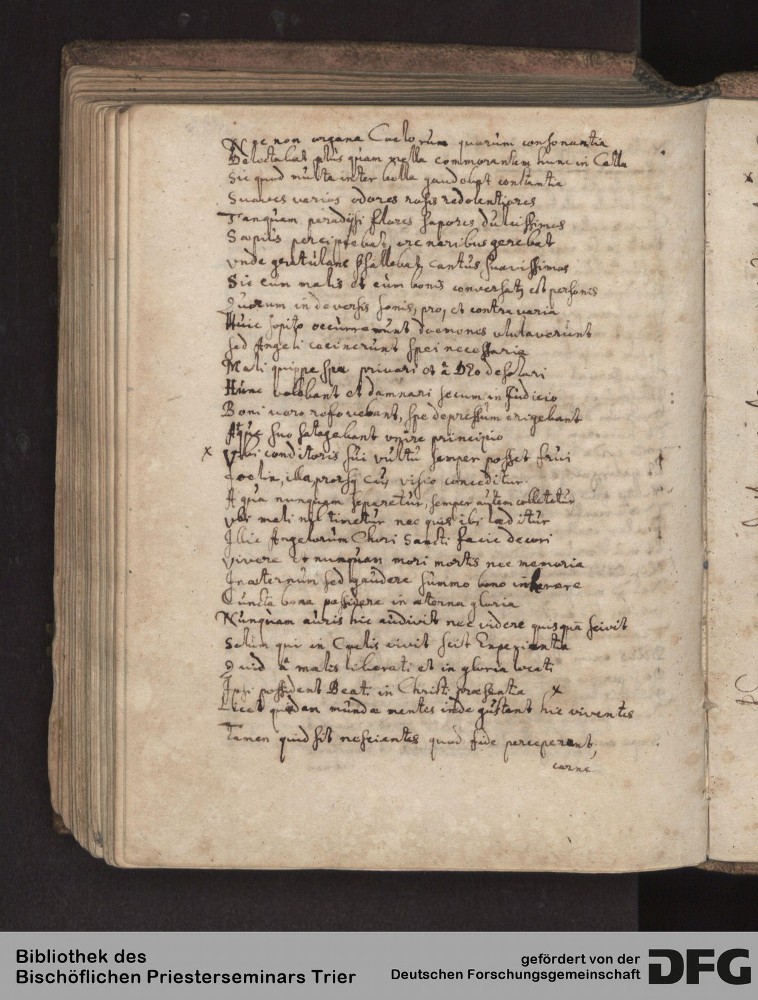 Nec non organa Caelorum quorum consonantia
Delectabat plus quam mella commorantem hunc in Cella
Sic quod multa inter bella gaudebat constantia
Suaves varios odores rosis redolentiores
Tanquam paradisi flores sapores dulcissimos
Saepius percipiebat, ore naribus gerebat
Unde gratulans psallebat cantus suavissimos
Sic cum malis et cum bonis conversatus est personis
Quorum in diversis sonis, pro, et contra varia
Huic sopito occurrerunt daemones ululaverunt
sed Angeli cecinerunt spei necessaria
Mali quippe spe privari et a Deo desolari
Hunc volebant et damnari secum in judicio
Boni vero refovebant, spe depressum erigebant
Atque suo satagebant unire principio
x Ubi conditoris sui vultu semper posset frui
Coelis, illa prorsus visio conceditur
A qua nunquam separetur, semper autem colletetur
Ubi mali nil timetur nec quis ibi laeditur
Illic Angelorum Chori Sancti facie decori
Vivere et nunquam mori mortis nec memoria
In aeternum sed gaudere summo bono inhaerere
Cuncta bona possidere in aeterna gloria
Nunquam auris hic audivit nec videre quisquam scivit
Solum qui in Coelis vivit scit Experientia
Quid a malis liberati et in gloria locati
Ipsi possident Beati in Christi praesentia x
Licet quidam mundae mentes inde gustant hic viventes
Tamen quid sit nescientes quod fide perceperant,
carne
Bibliothek des
Bischöflichen Priesterseminars Trier
gefördert von der
Deutschen Forschungsgemeinschaft
DFG